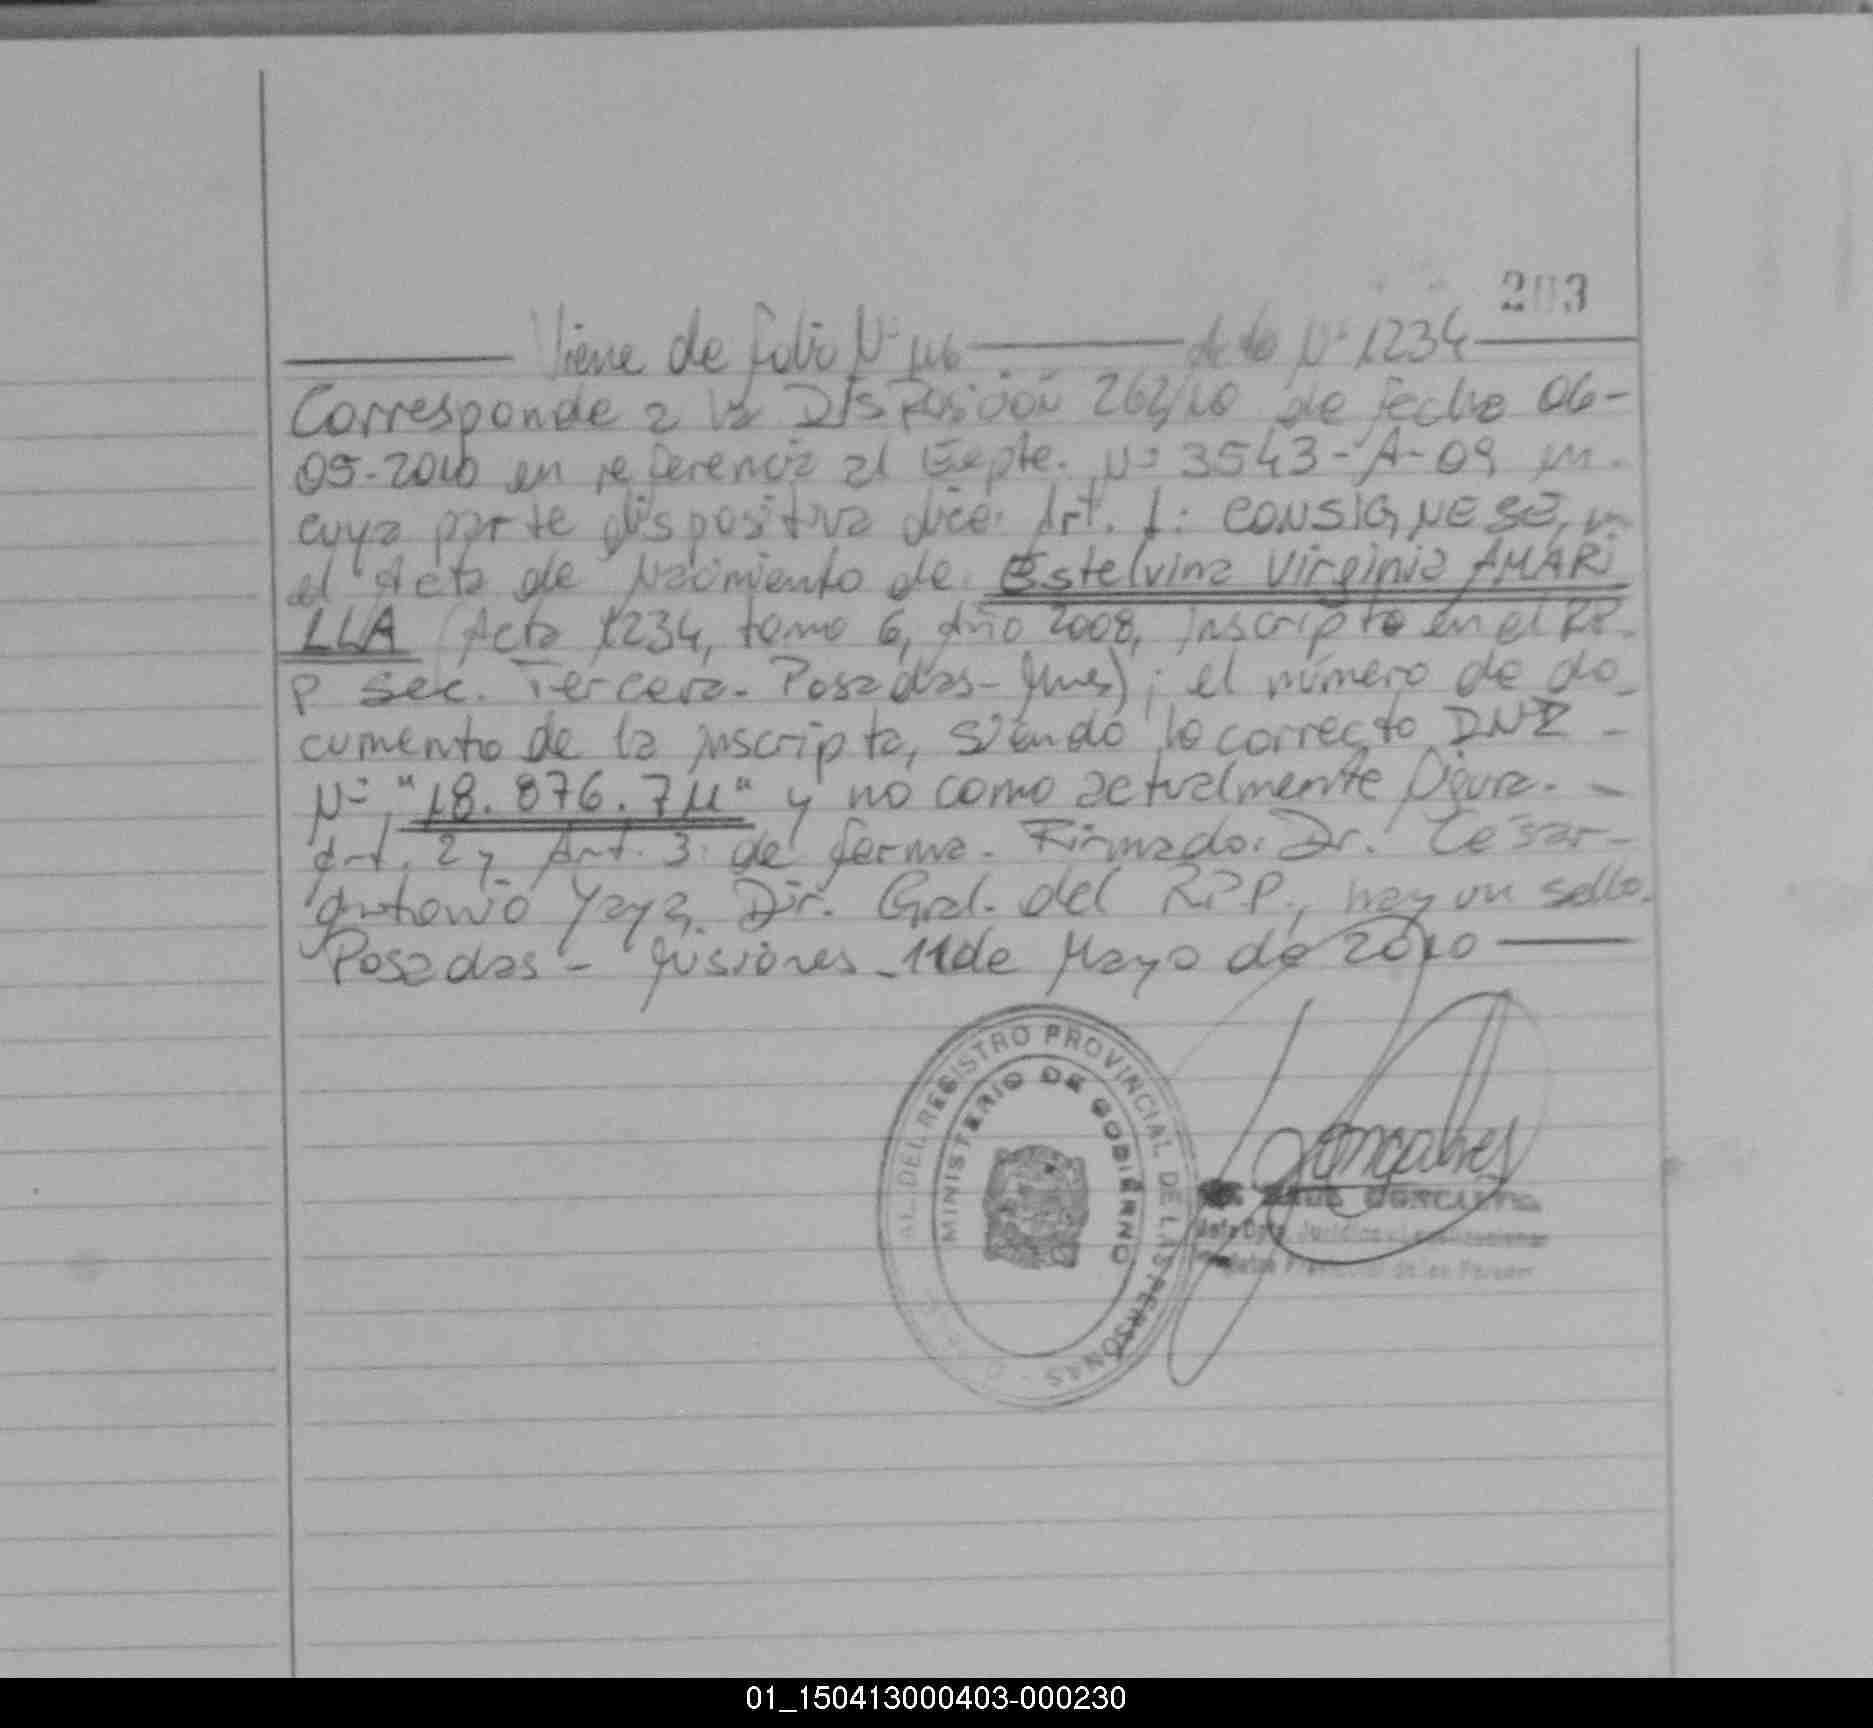 203
Viene de folio Nº 116 Acta Nº 1234
Corresponde a la Disposición 262/10 de fecha 06-
05-2010 en referencia al Expte. Nº 3543-A-09 en
cuya parte dispositiva dice: Art. 1: CONSIGNESE, en
el Acta de Nacimiento de: Estelvina Virginia AMARI
LLA (Acta 1234, tomo 6, Año 2008, Inscripto en el RP.
P Sec. Tercera. Posadas-Mnes); el número de do_
cumento de la inscripta, siendo lo correcto DNI -
Nº "18.876.711" y no como actualmente figura. -
Art. 2 y Art. 3: de forma. Firmado: Dr. César-
Antonio Yaya, Dir. Gral. del R.P.P., hay un sello.
Posadas - Misiones_11 de Mayo de 2010
AL. DEL REGISTRO PROVINCIAL DE LAS PERSONAS
MINISTERIO DE GOBIERNO
Goncalves
GONCALVES
Jefe Dpto. Jurídico y Legalizaciones
Registro Provincial de las Person
01_150413000403-000230